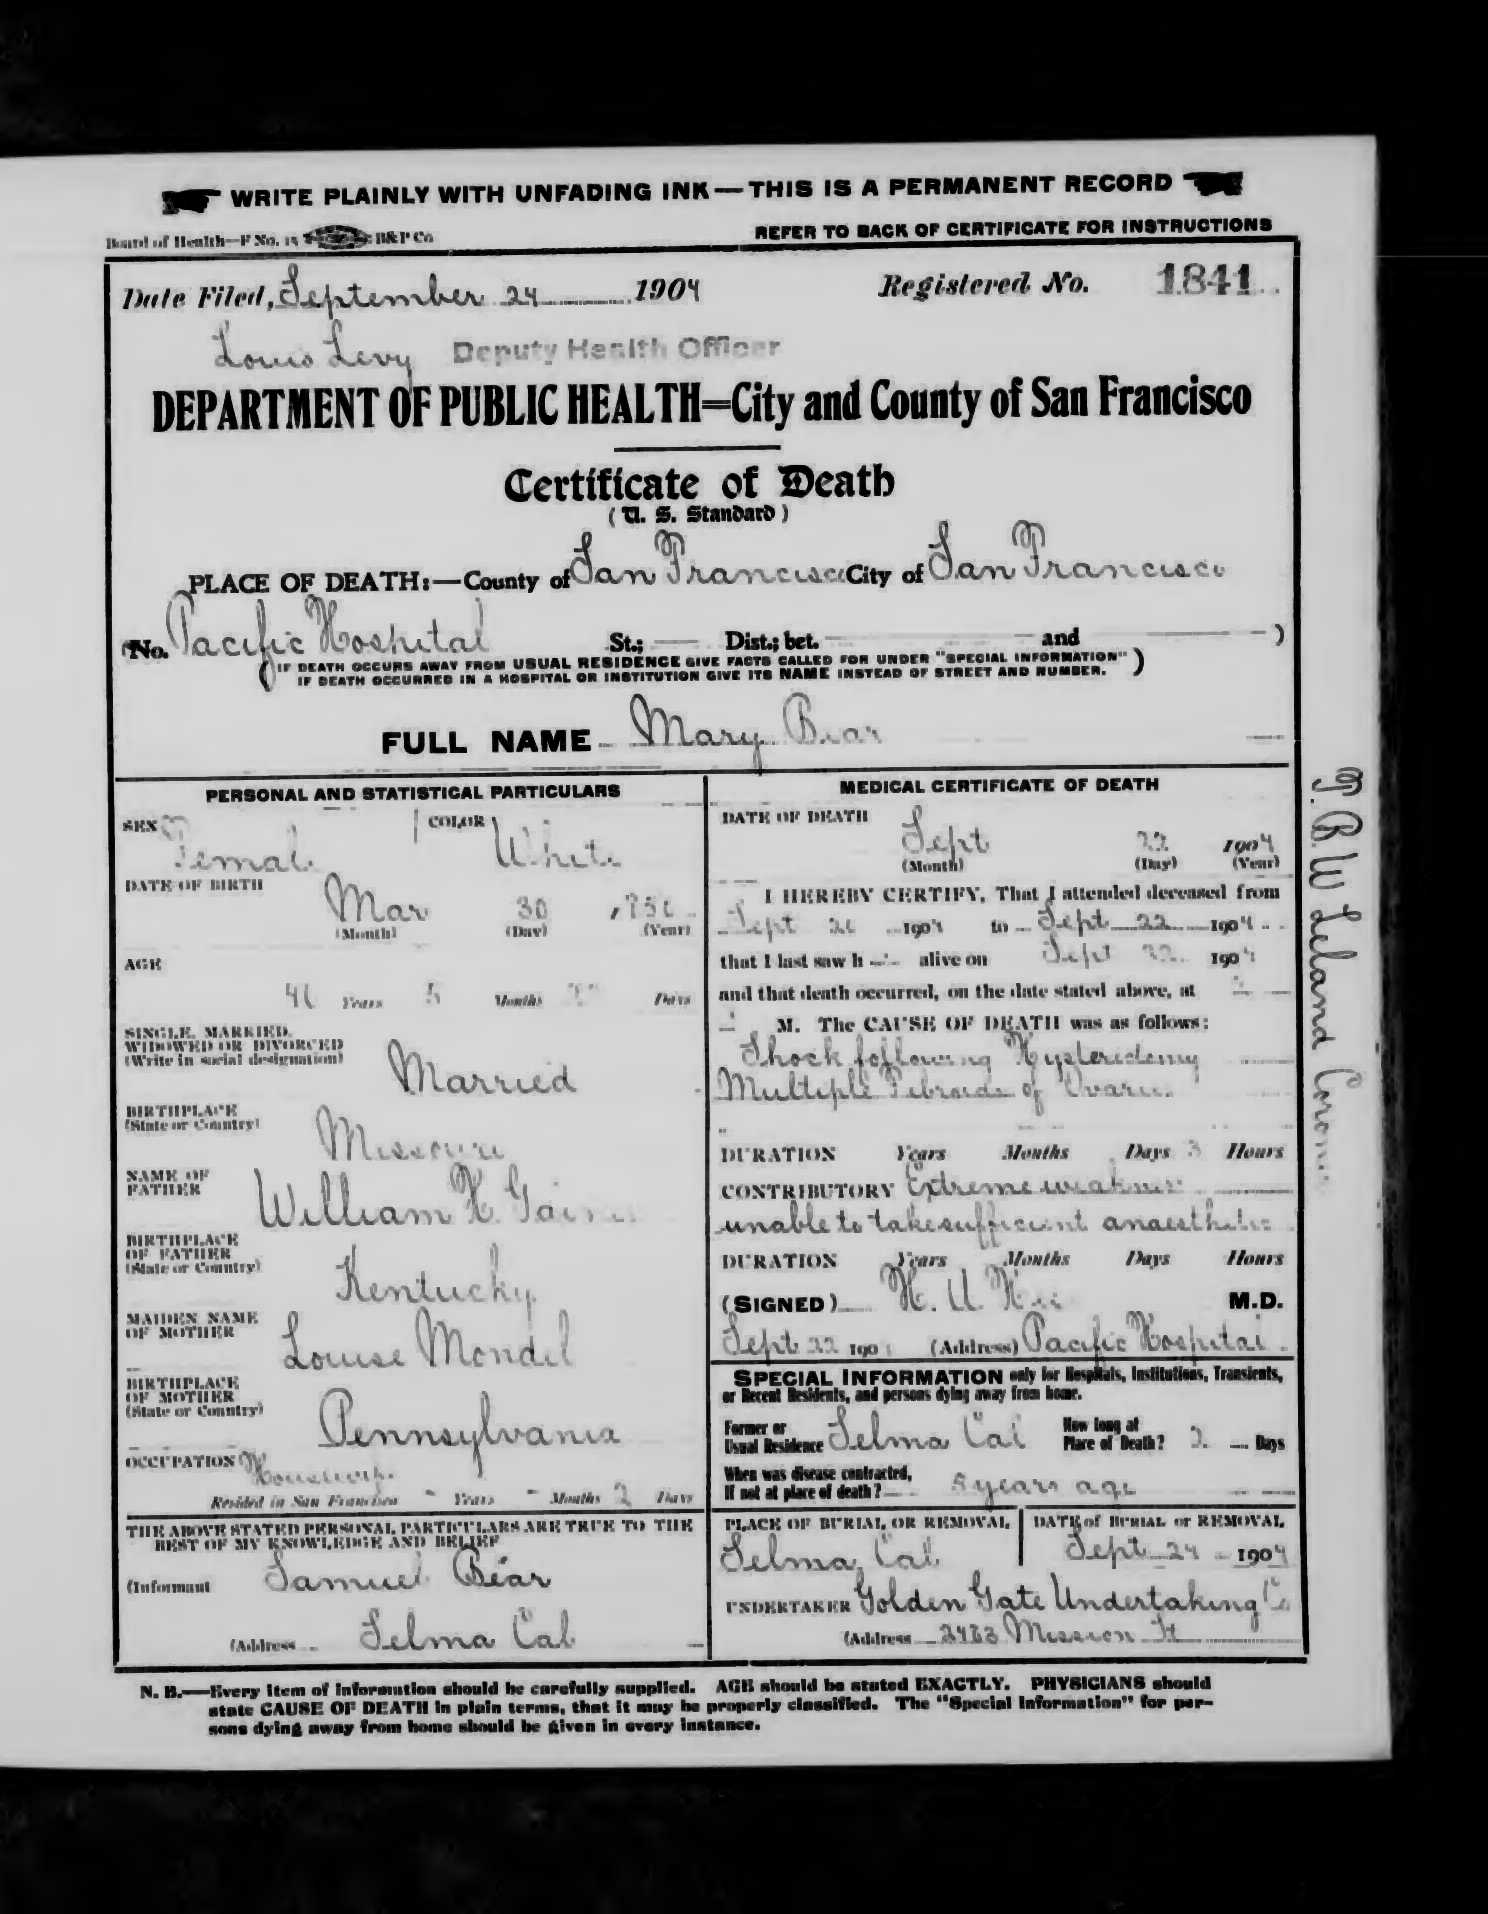 WRITE PLAINLY WITH UNFADING INK — THIS IS A PERMANENT RECORD
Board of Health—F No. 15 B&P Co
REFER TO BACK OF CERTIFICATE FOR INSTRUCTIONS
Date Filed, September 24 1904 Registered No. 1841
Louis Levy Deputy Health Officer
DEPARTMENT OF PUBLIC HEALTH=City and County of San Francisco
Certificate of Death
( U. S. Standard )
PLACE OF DEATH:—County of San Francisco City of San Francisco
(No. Pacific Hospital St.; — Dist.; bet. — and — )
( IF DEATH OCCURS AWAY FROM USUAL RESIDENCE GIVE FACTS CALLED FOR UNDER "SPECIAL INFORMATION" )
IF DEATH OCCURRED IN A HOSPITAL OR INSTITUTION GIVE ITS NAME INSTEAD OF STREET AND NUMBER.
FULL NAME Mary Bear
PERSONAL AND STATISTICAL PARTICULARS
SEX Female COLOR White
DATE OF BIRTH
Mar 30
(Month) (Day) (Year)
AGE
Years 5 Months Days
SINGLE, MARRIED,
WIDOWED OR DIVORCED
(Write in social designation)
Married
BIRTHPLACE
(State or Country)
Missouri
NAME OF
FATHER
William H.
BIRTHPLACE
OF FATHER
(State or Country)
Kentucky
MAIDEN NAME
OF MOTHER
Louise Mondel
BIRTHPLACE
OF MOTHER
(State or Country)
Pennsylvania
OCCUPATION Housewife
Resided in San Francisco - Years - Months 2 Days
THE ABOVE STATED PERSONAL PARTICULARS ARE TRUE TO THE
BEST OF MY KNOWLEDGE AND BELIEF
(Informant Samuel Bear
(Address Selma Cal
MEDICAL CERTIFICATE OF DEATH
DATE OF DEATH
Sept 22 1904
(Month) (Day) (Year)
I HEREBY CERTIFY, That I attended deceased from
Sept 1904 to Sept 22 1904
that I last saw h alive on Sept 22 1904
and that death occurred, on the date stated above, at
M. The CAUSE OF DEATH was as follows:
Shock following Hysterectomy
Multiple Fibroids of
DURATION Years Months Days 3 Hours
CONTRIBUTORY Extreme weakness
unable to take sufficient anaesthetic
DURATION Years Months Days Hours
(SIGNED) H. M.D.
Sept 22 190 (Address) Pacific Hospital
SPECIAL INFORMATION only for Hospitals, Institutions, Transients,
or Recent Residents, and persons dying away from home.
Former or
Usual Residence Selma Cal
How long at
Place of Death? 2 Days
When was disease contracted,
If not at place of death? 5 years ago
PLACE OF BURIAL OR REMOVAL
Selma, Cal
DATE of BURIAL or REMOVAL
Sept 24 1904
UNDERTAKER Golden Gate Undertaking Co
(Address Mission St
T. B. W Leland Coroner
N. B.—Every item of information should be carefully supplied. AGE should be stated EXACTLY. PHYSICIANS should
state CAUSE OF DEATH in plain terms, that it may be properly classified. The "Special Information" for per-
sons dying away from home should be given in every instance.